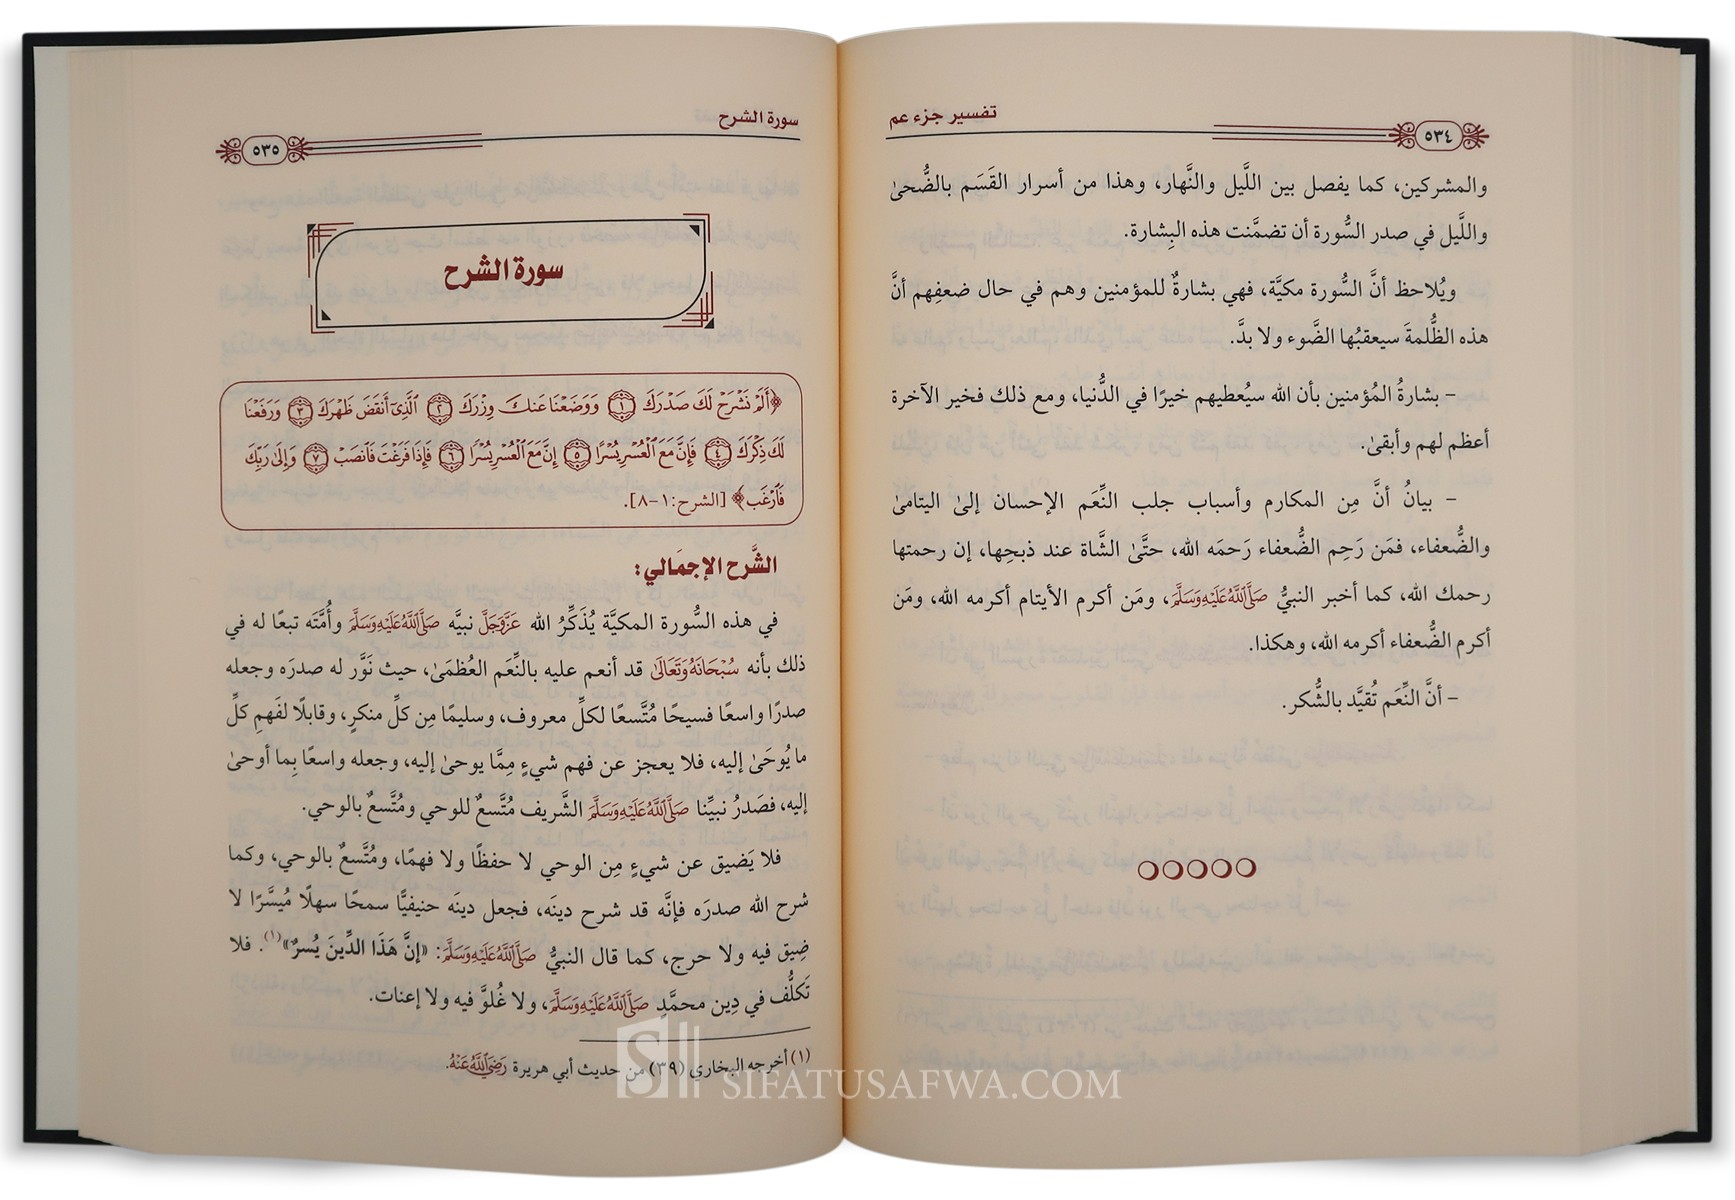 تفسير جزء عم
٥٣٤
والمشركين، كما يفصل بين اللَّيل والنَّهار، وهذا من أسرار القَسَم بالضُّحىٰ
واللَّيل في صدر السُّورة أن تضمَّنت هذه البِشارة.
ويُلاحظ أنَّ السُّورة مكيَّة، فهي بشارةٌ للمؤمنين وهم في حال ضعفِهم أنَّ
هذه الظُّلمةَ سيعقبُها الضَّوء ولا بدَّ.
- بشارةُ المُؤمنين بأن الله سيُعطيهم خيرًا في الدُّنيا، ومع ذلك فخير الآخرة
أعظم لهم وأبقىٰ.
- بيانُ أنَّ مِن المكارم وأسباب جلب النِّعَم الإحسان إلىٰ اليتامىٰ
والضُّعفاء، فمَن رَحِم الضُّعفاء رَحمَه الله، حتَّىٰ الشَّاة عند ذبحِها، إن رحمتها
رحمك الله، كما أخبر النبيُّ صَلَّى اللَّهُ عَلَيْهِ وَسَلَّمَ، ومَن أكرم الأيتام أكرمه الله، ومَن
أكرم الضُّعفاء أكرمه الله، وهكذا.
- أنَّ النِّعَم تُقيَّد بالشُّكر.
سورة الشرح
٥٣٥
سورة الشرح
﴿أَلَمْ نَشْرَحْ لَكَ صَدْرَكَ ١ وَوَضَعْنَا عَنكَ وِزْرَكَ ٢ ٱلَّذِىٓ أَنقَضَ ظَهْرَكَ ٣ وَرَفَعْنَا
لَكَ ذِكْرَكَ ٤ فَإِنَّ مَعَ ٱلْعُسْرِ يُسْرًا ٥ إِنَّ مَعَ ٱلْعُسْرِ يُسْرًا ٦ فَإِذَا فَرَغْتَ فَٱنصَبْ ٧ وَإِلَىٰ رَبِّكَ
فَٱرْغَب﴾ [الشرح: ١-٨].
الشَّرح الإجمَالي:
في هذه السُّورة المكيَّة يُذَكِّرُ الله عَزَّوَجَلَّ نبيَّه صَلَّى اللَّهُ عَلَيْهِ وَسَلَّمَ وأُمَّتَه تبعًا له في
ذلك بأنه سُبْحَانَهُ وَتَعَالَىٰ قد أنعم عليه بالنِّعَم العُظمَىٰ، حيث نَوَّر له صدرَه وجعله
صدرًا واسعًا فسيحًا مُتَّسعًا لكلِّ معروف، وسليمًا مِن كلِّ منكرٍ، وقابلًا لفَهمِ كلِّ
ما يُوحَىٰ إليه، فلا يعجز عن فهم شيءٍ مِمَّا يوحىٰ إليه، وجعله واسعًا بِما أوحىٰ
إليه، فصَدرُ نبيِّنا صَلَّى اللَّهُ عَلَيْهِ وَسَلَّمَ الشَّريف مُتَّسعٌ للوحي ومُتَّسعٌ بالوحي.
فلا يَضيق عن شيءٍ مِن الوحي لا حفظًا ولا فهمًا، ومُتَّسعٌ بالوحي، وكما
شرح الله صدرَه فإنَّه قد شرح دينَه، فجعل دينَه حنيفيًّا سمحًا سهلًا مُيسَّرًا لا
ضِيق فيه ولا حرج، كما قال النبيُّ صَلَّى اللَّهُ عَلَيْهِ وَسَلَّمَ: «إنَّ هَذَا الدِّينَ يُسرٌ»(١). فلا
تَكلُّف في دِين محمَّدٍ صَلَّى اللَّهُ عَلَيْهِ وَسَلَّمَ، ولا غُلوَّ فيه ولا إعنات.
(١) أخرجه البخاري (٣٩) من حديث أبي هريرة رَضِيَ اللَّهُ عَنْهُ.
SIFATUSAFWA.COM